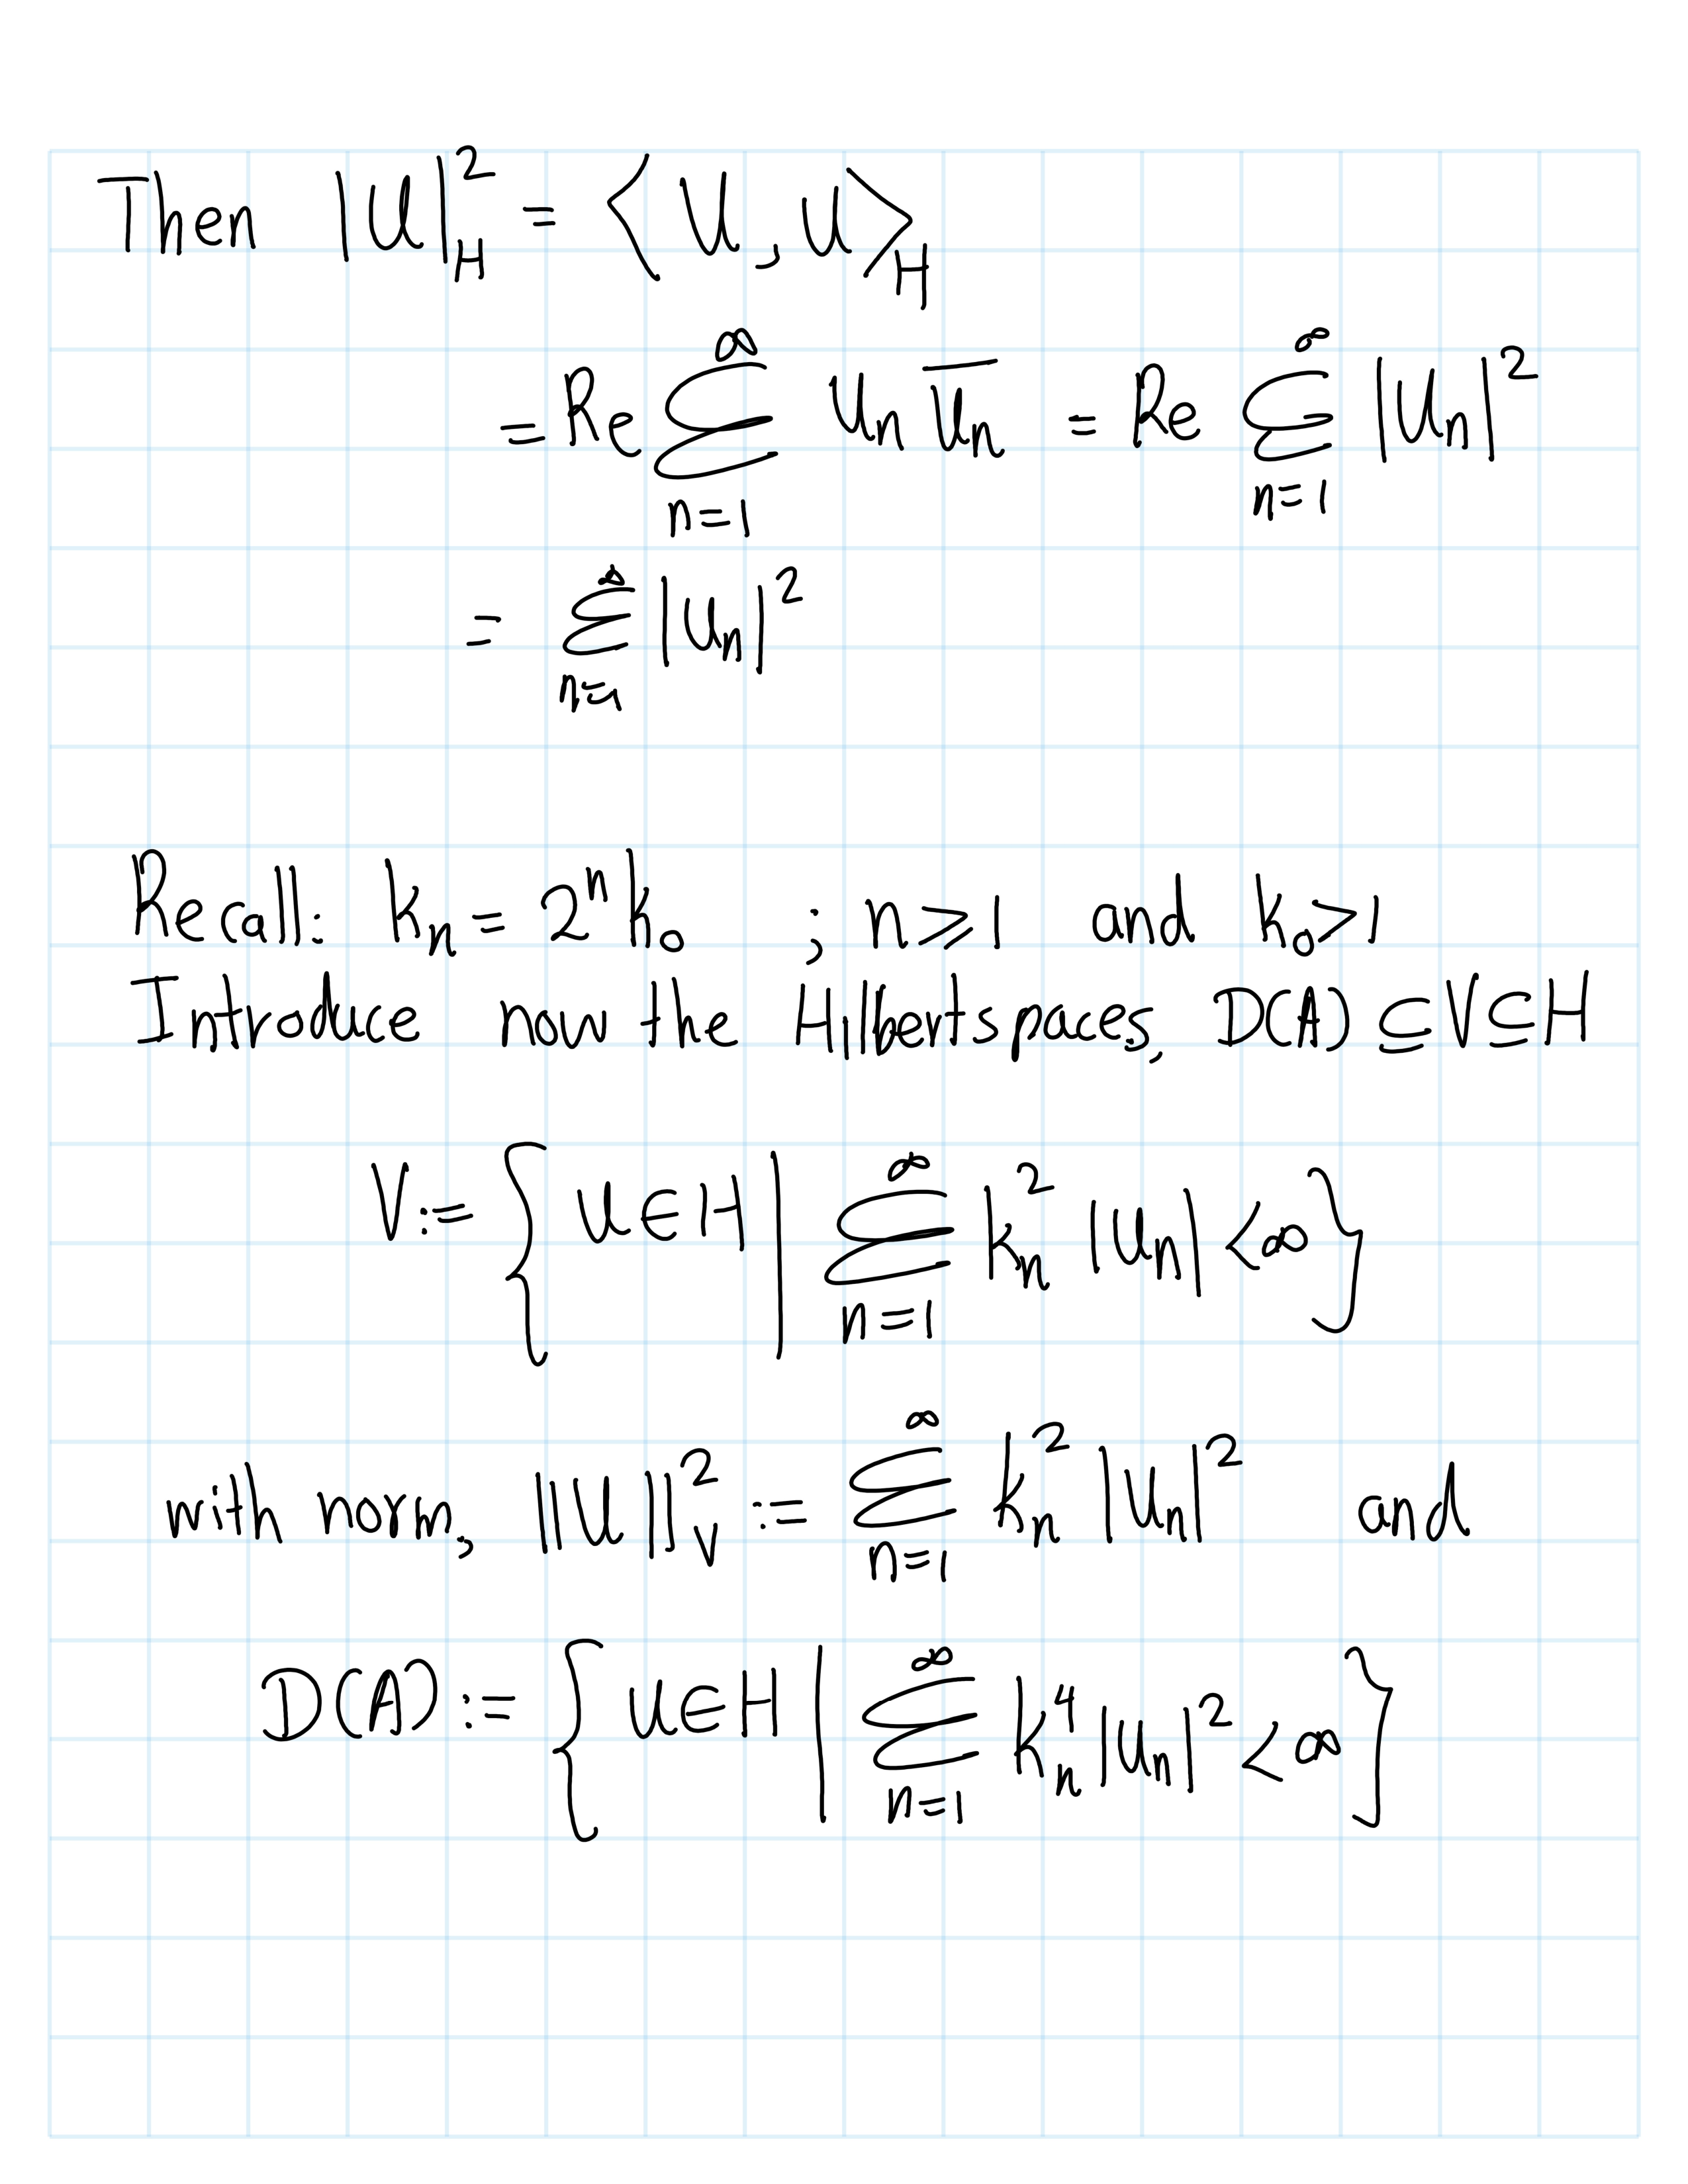 Then |U|²_H = ⟨U, U⟩_H
= Re ∑_{n=1}^{∞} U_n \overline{U_n} = Re ∑_{n=1}^{∞} |U_n|²
= ∑_{n=1}^{∞} |U_n|²
Recall: k_n = 2ⁿ k₀ ; n ⩾ 1 and k₀ > 1
Introduce now the Hilbert spaces, D(A) ⊆ V ⊆ H
V := { U ∈ H | ∑_{n=1}^{∞} k_n² |U_n| < ∞ }
with norm, ||U||²_V := ∑_{n=1}^{∞} k_n² |U_n|² and
D(A) := { U ∈ H | ∑_{n=1}^{∞} k_n⁴ |U_n|² < ∞ }